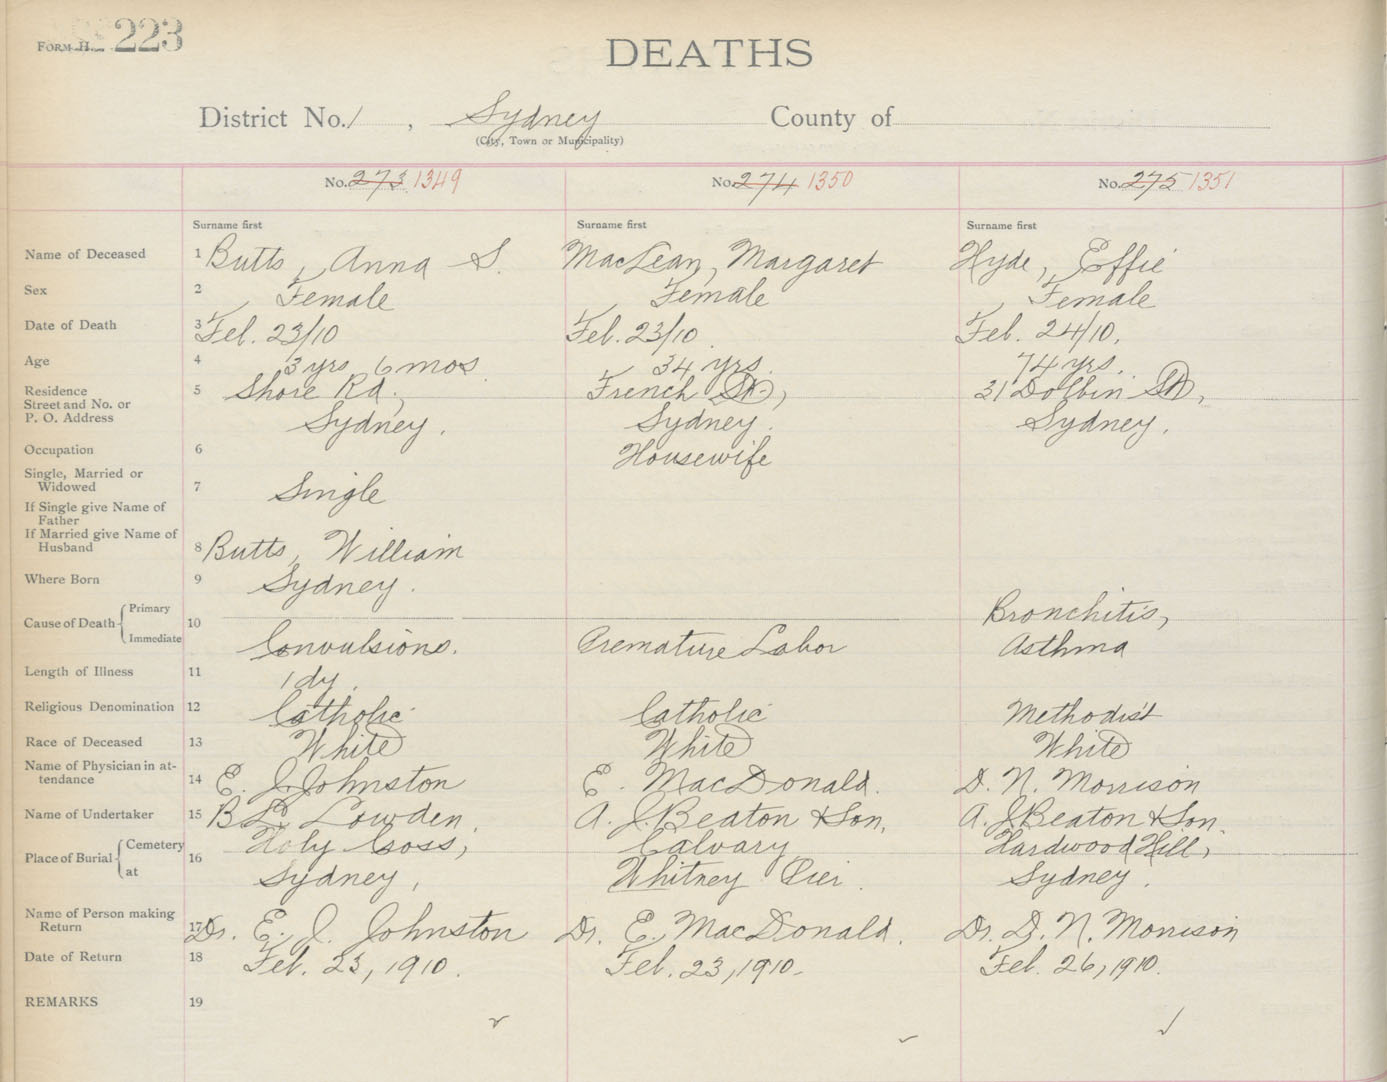 FORM H. 223
DEATHS
District No. 1 , Sydney County of
(City, Town or Municipality)
No. 273 1349 No. 274 1350 No. 275 1351
Surname first Surname first Surname first
Name of Deceased 1 Butts, Anna S. MacLean, Margaret Hyde, Effie
Sex 2 Female Female Female
Date of Death 3 Feb. 23/10 Feb. 23/10. Feb. 24/10.
Age 4 3 yrs 6 mos. 34 yrs. 74 yrs.
Residence 5 Shore Rd., French St., 31 Dolbin St.,
Street and No. or
P. O. Address Sydney. Sydney. Sydney.
Occupation 6 Housewife
Single, Married or
Widowed 7 Single
If Single give Name of
Father
If Married give Name of
Husband 8 Butts, William
Where Born 9 Sydney.
Cause of Death Primary 10 Bronchitis,
Immediate Convulsions. Premature Labor Asthma
Length of Illness 11 1 dy.
Religious Denomination 12 Catholic Catholic Methodist
Race of Deceased 13 White White White
Name of Physician in at-
tendance 14 E. J. Johnston E. MacDonald. D. N. Morrison
Name of Undertaker 15 Lowden. A. J. Beaton & Son. A. J. Beaton & Son
Place of Burial Cemetery 16 Holy Coss, Calvary Hardwood Hill,
at Sydney, Whitney Pier. Sydney.
Name of Person making
Return 17 Dr. E. J. Johnston Dr. E. MacDonald. Dr. D. N. Morrison
Date of Return 18 Feb. 23, 1910. Feb. 23, 1910. Feb. 26, 1910.
REMARKS 19